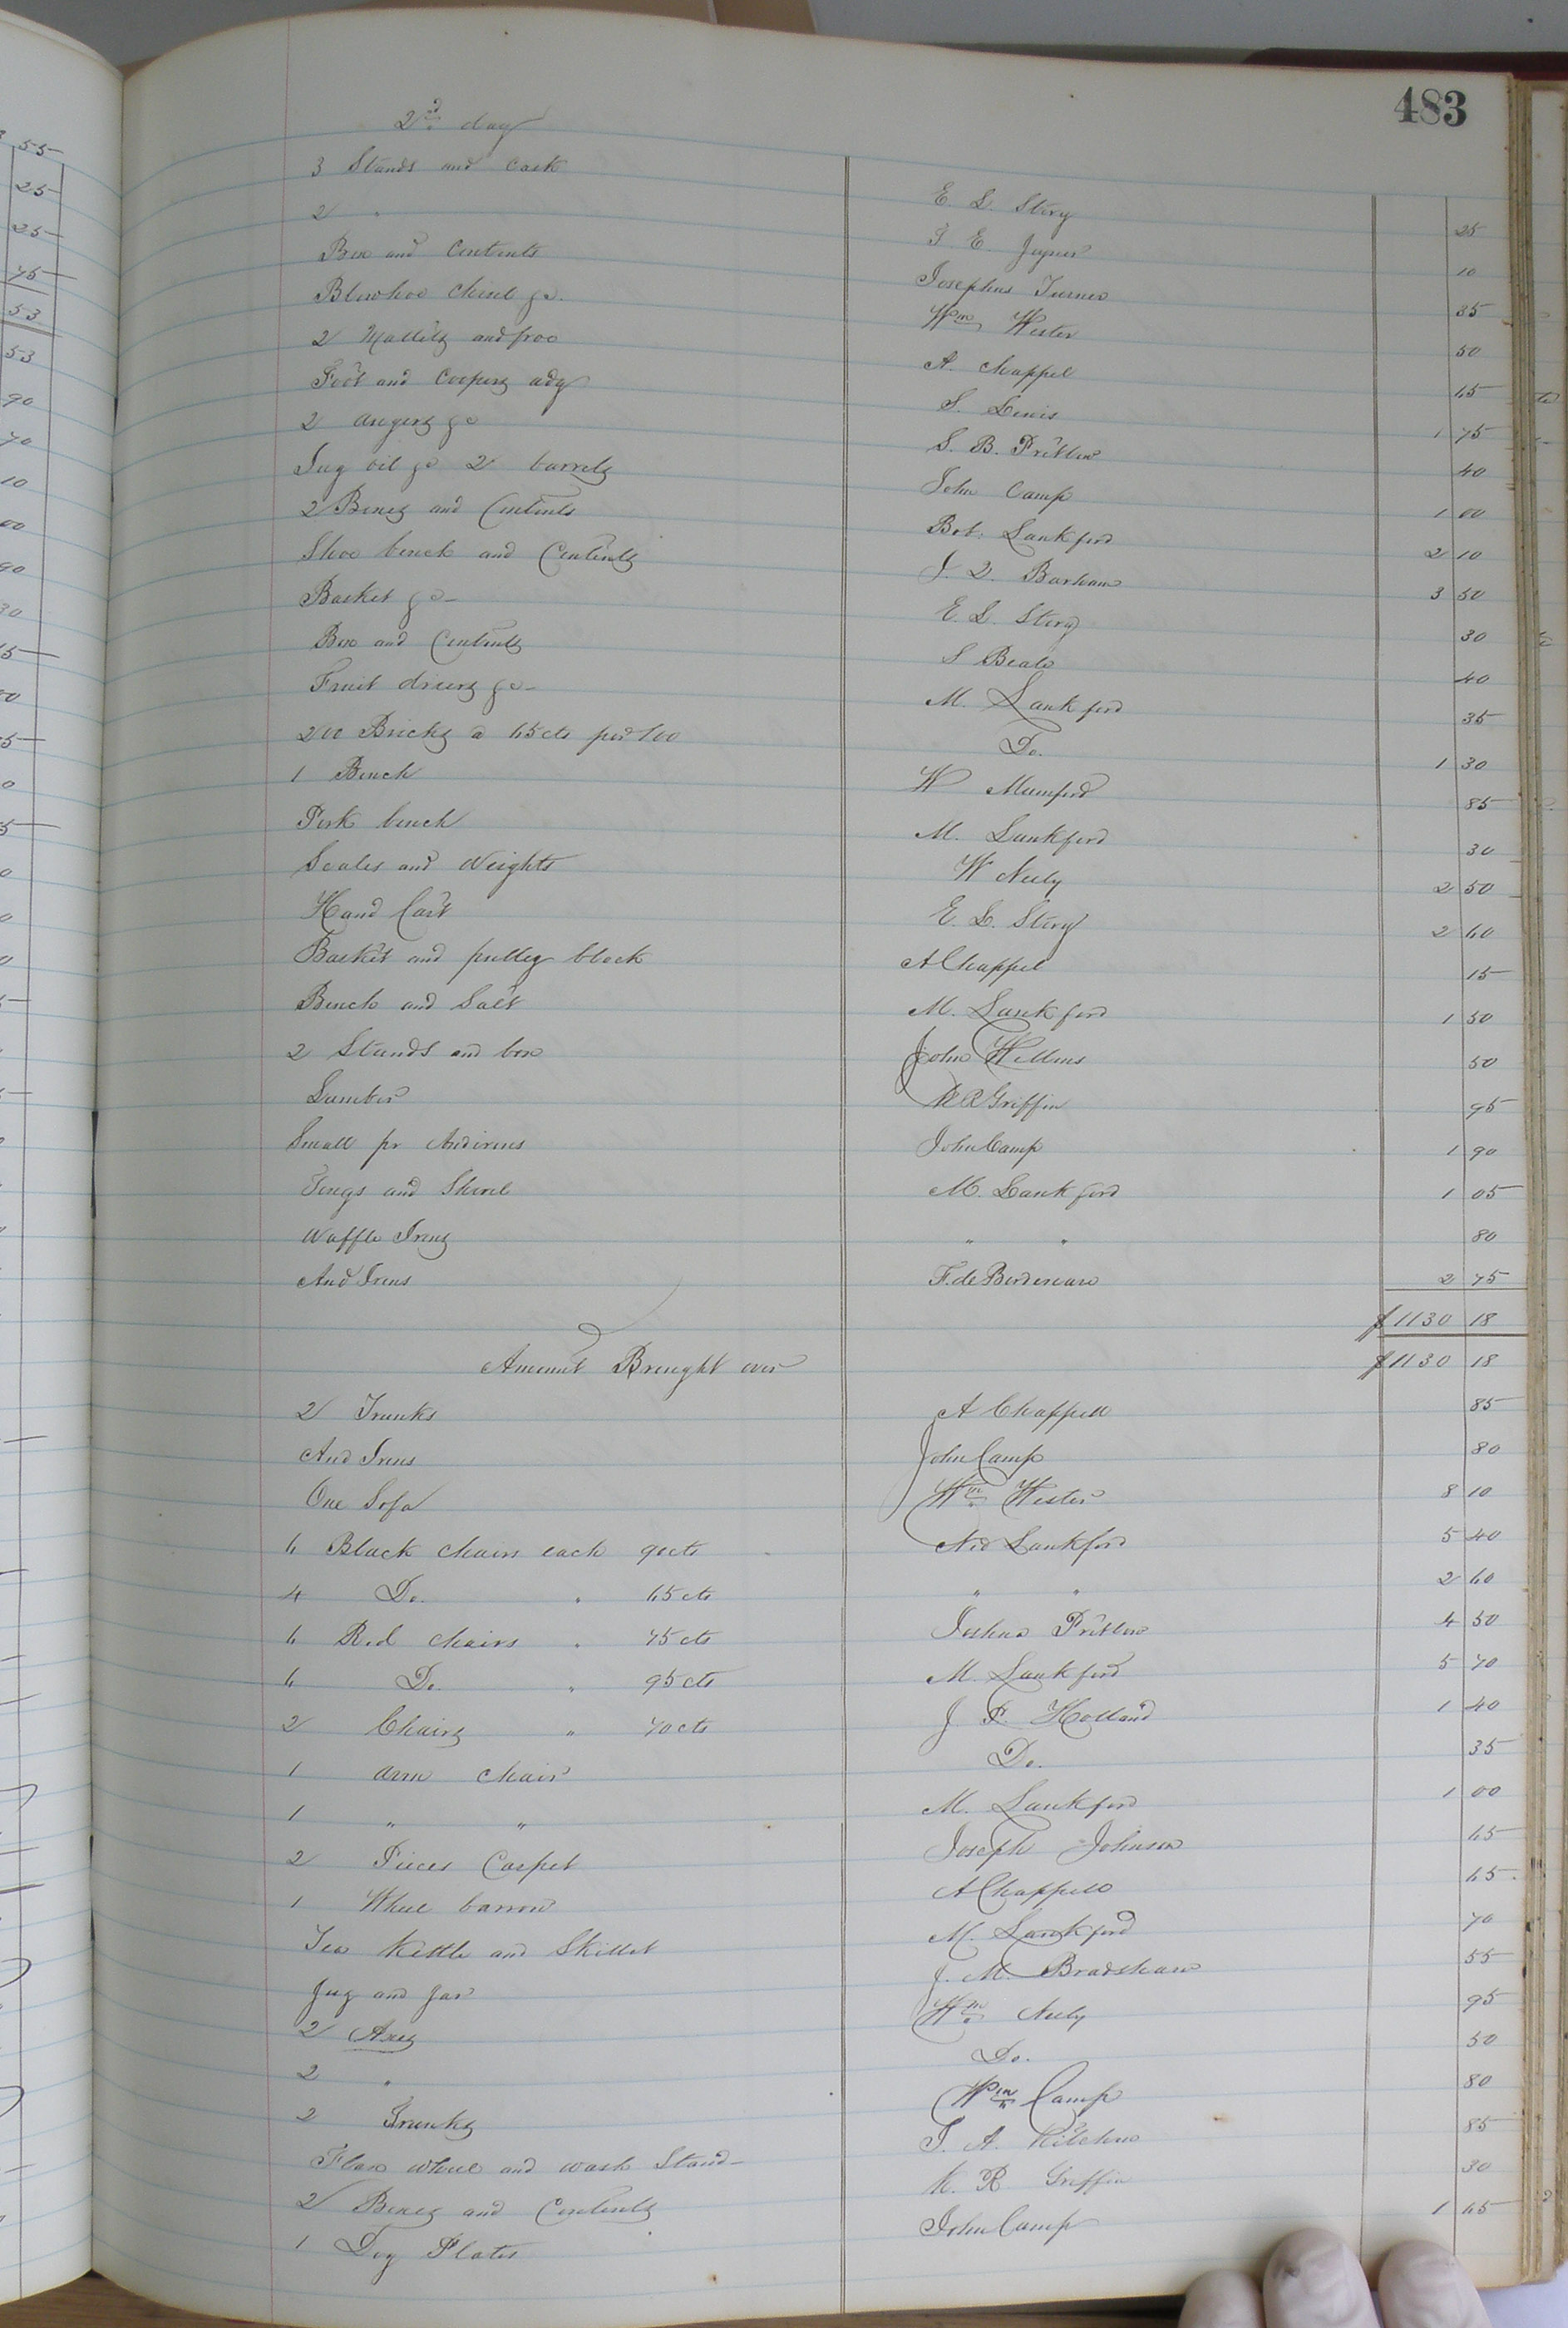 483
2d day
3 Stands and cask E. L. Story 25
2 " T E Joyner 10
Box and Contents Josephus Turner 35
Blowhoe Chisel &c. Wm Wester 50
2 Mallets and froe A. Chappel 65
Foot and Coopers adz S. Lewis 1 75
2 augers &c S. B. Pretlow 40
Jug oil &c 2 barrels John Camp 1 00
2 Boxes and Contents Bob: Lankford 2 10
Shoe bench and Contents J. Q. Barham 3 50
Basket &c E. L. Story 30
Box and Contents S Beale 40
Fruit driers &c M. Lankford 35
200 Bricks a 65cts per 100 Do. 1 30
1 Bench W Mumford 85
Pork bench M. Lankford 30
Scales and Weights W Neely 2 50
Hand Cart E. L. Story 2 60
Basket and pulley block A Chappel 15
Bench and Salt M. Lankford 1 50
2 Stands and box John Williams 50
Lumber K R Griffin 95
Small pr Andirons John Camp 1 90
Tongs and Shovel M. Lankford 1 05
Waffle Irons " " 80
And Irons F. de Bordeneave 2 75
$1130 18
Amount Brought over $1130 18
2 Trunks A Chappell 85
And Irons John Camp 80
One Sofa Wm Wester 8 10
6 Black chairs each 90cts Ned Lankford 5 40
4 Do. " 65cts " " 2 60
6 Red chairs " 75cts Joshua Pretlow 4 50
6 Do. " 95cts M. Lankford 5 70
2 Chairs " 70cts J. P. Holland 1 40
1 arm chair Do. 35
1 " " M. Lankford 1 00
2 Pieces Carpet Joseph Johnson 65
1 Wheel barrow A Chappell 65
Tea Kettle and Skillet M. Lankford 70
Jug and Jar J. M. Bradshaw 55
2 Axes Wm Neely 95
2 " Do. 50
2 Trunks Wm Camp 80
Flax wheel and wash Stand T. A. Kitchen 85
2 Boxes and Contents K. R. Griffin 30
1 Dog Plates John Camp 1 65
55
25
25
75
53
53
90
70
10